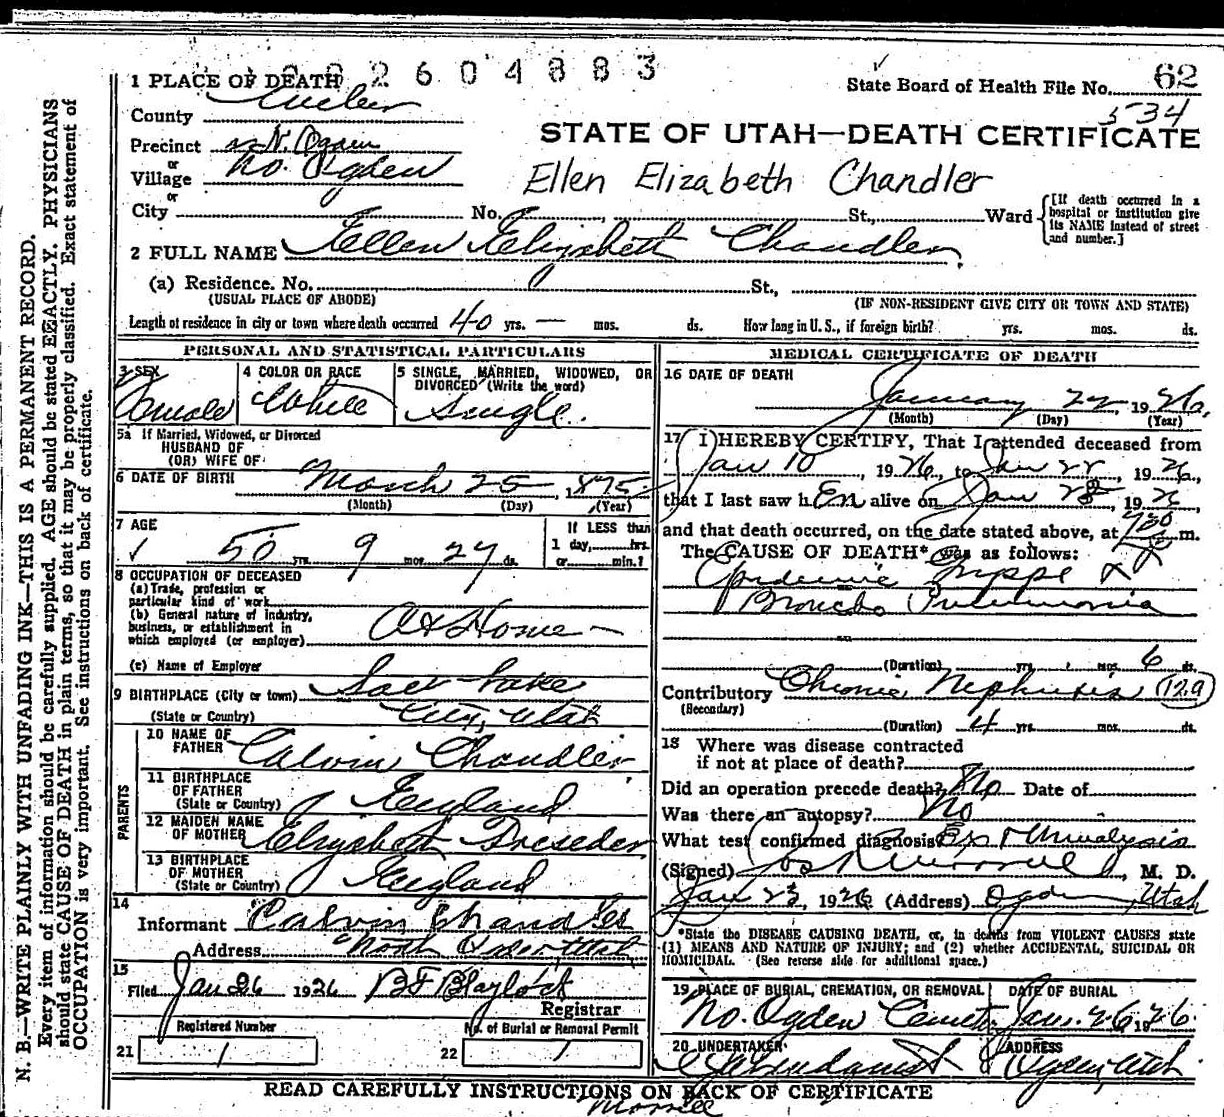 2604883
1 PLACE OF DEATH
State Board of Health File No. 62
534
County Weber
STATE OF UTAH—DEATH CERTIFICATE
Precinct N. Ogden
or
Village No. Ogden
Ellen Elizabeth Chandler
or
City No. St., Ward
[If death occurred in a hospital or institution give its NAME instead of street and number.]
2 FULL NAME Ellen Elizabeth Chandler
(a) Residence. No. St.,
(USUAL PLACE OF ABODE) (IF NON-RESIDENT GIVE CITY OR TOWN AND STATE)
Length of residence in city or town where death occurred 40 yrs. — mos. ds. How long in U. S., if foreign birth? yrs. mos. ds.
PERSONAL AND STATISTICAL PARTICULARS
3 SEX
Female
4 COLOR OR RACE
White
5 SINGLE, MARRIED, WIDOWED, OR
DIVORCED (Write the word)
Single.
5a If Married, Widowed, or Divorced
HUSBAND OF
(OR) WIFE OF
6 DATE OF BIRTH March 25, 1875
(Month) (Day) (Year)
7 AGE
50 yrs. 9 mos. 27 ds.
If LESS than
1 day, hrs.
or min.?
8 OCCUPATION OF DECEASED
(a) Trade, profession or
particular kind of work
(b) General nature of industry,
business, or establishment in
which employed (or employer) At Home —
(c) Name of Employer
9 BIRTHPLACE (City or town) Salt Lake
(State or Country) City, Utah
PARENTS
10 NAME OF
FATHER Calvin Chandler
11 BIRTHPLACE
OF FATHER
(State or Country) England
12 MAIDEN NAME
OF MOTHER Elizabeth Treseder
13 BIRTHPLACE
OF MOTHER
(State or Country) England
14
Informant Calvin Chandler
Address North Ogden, Utah
15
Filed Jan 26 1926 BF Blaylock
Registrar
Registered Number No. of Burial or Removal Permit
21 1 22 1
MEDICAL CERTIFICATE OF DEATH
16 DATE OF DEATH
January 22 1926,
(Month) (Day) (Year)
17 I HEREBY CERTIFY, That I attended deceased from
Jan 10, 1926, to Jan 22, 1926,
that I last saw h er alive on Jan 1926,
and that death occurred, on the date stated above, at 730 m.
The CAUSE OF DEATH* was as follows:
Epidemic Grippe
Broncho Pneumonia
(Duration) yrs. mos. 6 ds.
Contributory Chronic Nephritis 129
(Secondary)
(Duration) 4 yrs. mos. ds.
18 Where was disease contracted
if not at place of death?
Did an operation precede death? No Date of
Was there an autopsy? No
What test confirmed diagnosis? Urinalysis
(Signed) M. D.
Jan 23, 1926 (Address) Ogden, Utah
*State the DISEASE CAUSING DEATH, or, in deaths from VIOLENT CAUSES state
(1) MEANS AND NATURE OF INJURY; and (2) whether ACCIDENTAL, SUICIDAL OR
HOMICIDAL. (See reverse side for additional space.)
19 PLACE OF BURIAL, CREMATION, OR REMOVAL DATE OF BURIAL
No. Ogden Cemetery Jan. 26 1926
20 UNDERTAKER ADDRESS
Ogden, Utah
READ CAREFULLY INSTRUCTIONS ON BACK OF CERTIFICATE
Morrell
N. B.—WRITE PLAINLY WITH UNFADING INK—THIS IS A PERMANENT RECORD.
Every item of information should be carefully supplied. AGE should be stated EXACTLY. PHYSICIANS
should state CAUSE OF DEATH in plain terms, so that it may be properly classified. Exact statement of
OCCUPATION is very important. See instructions on back of certificate.